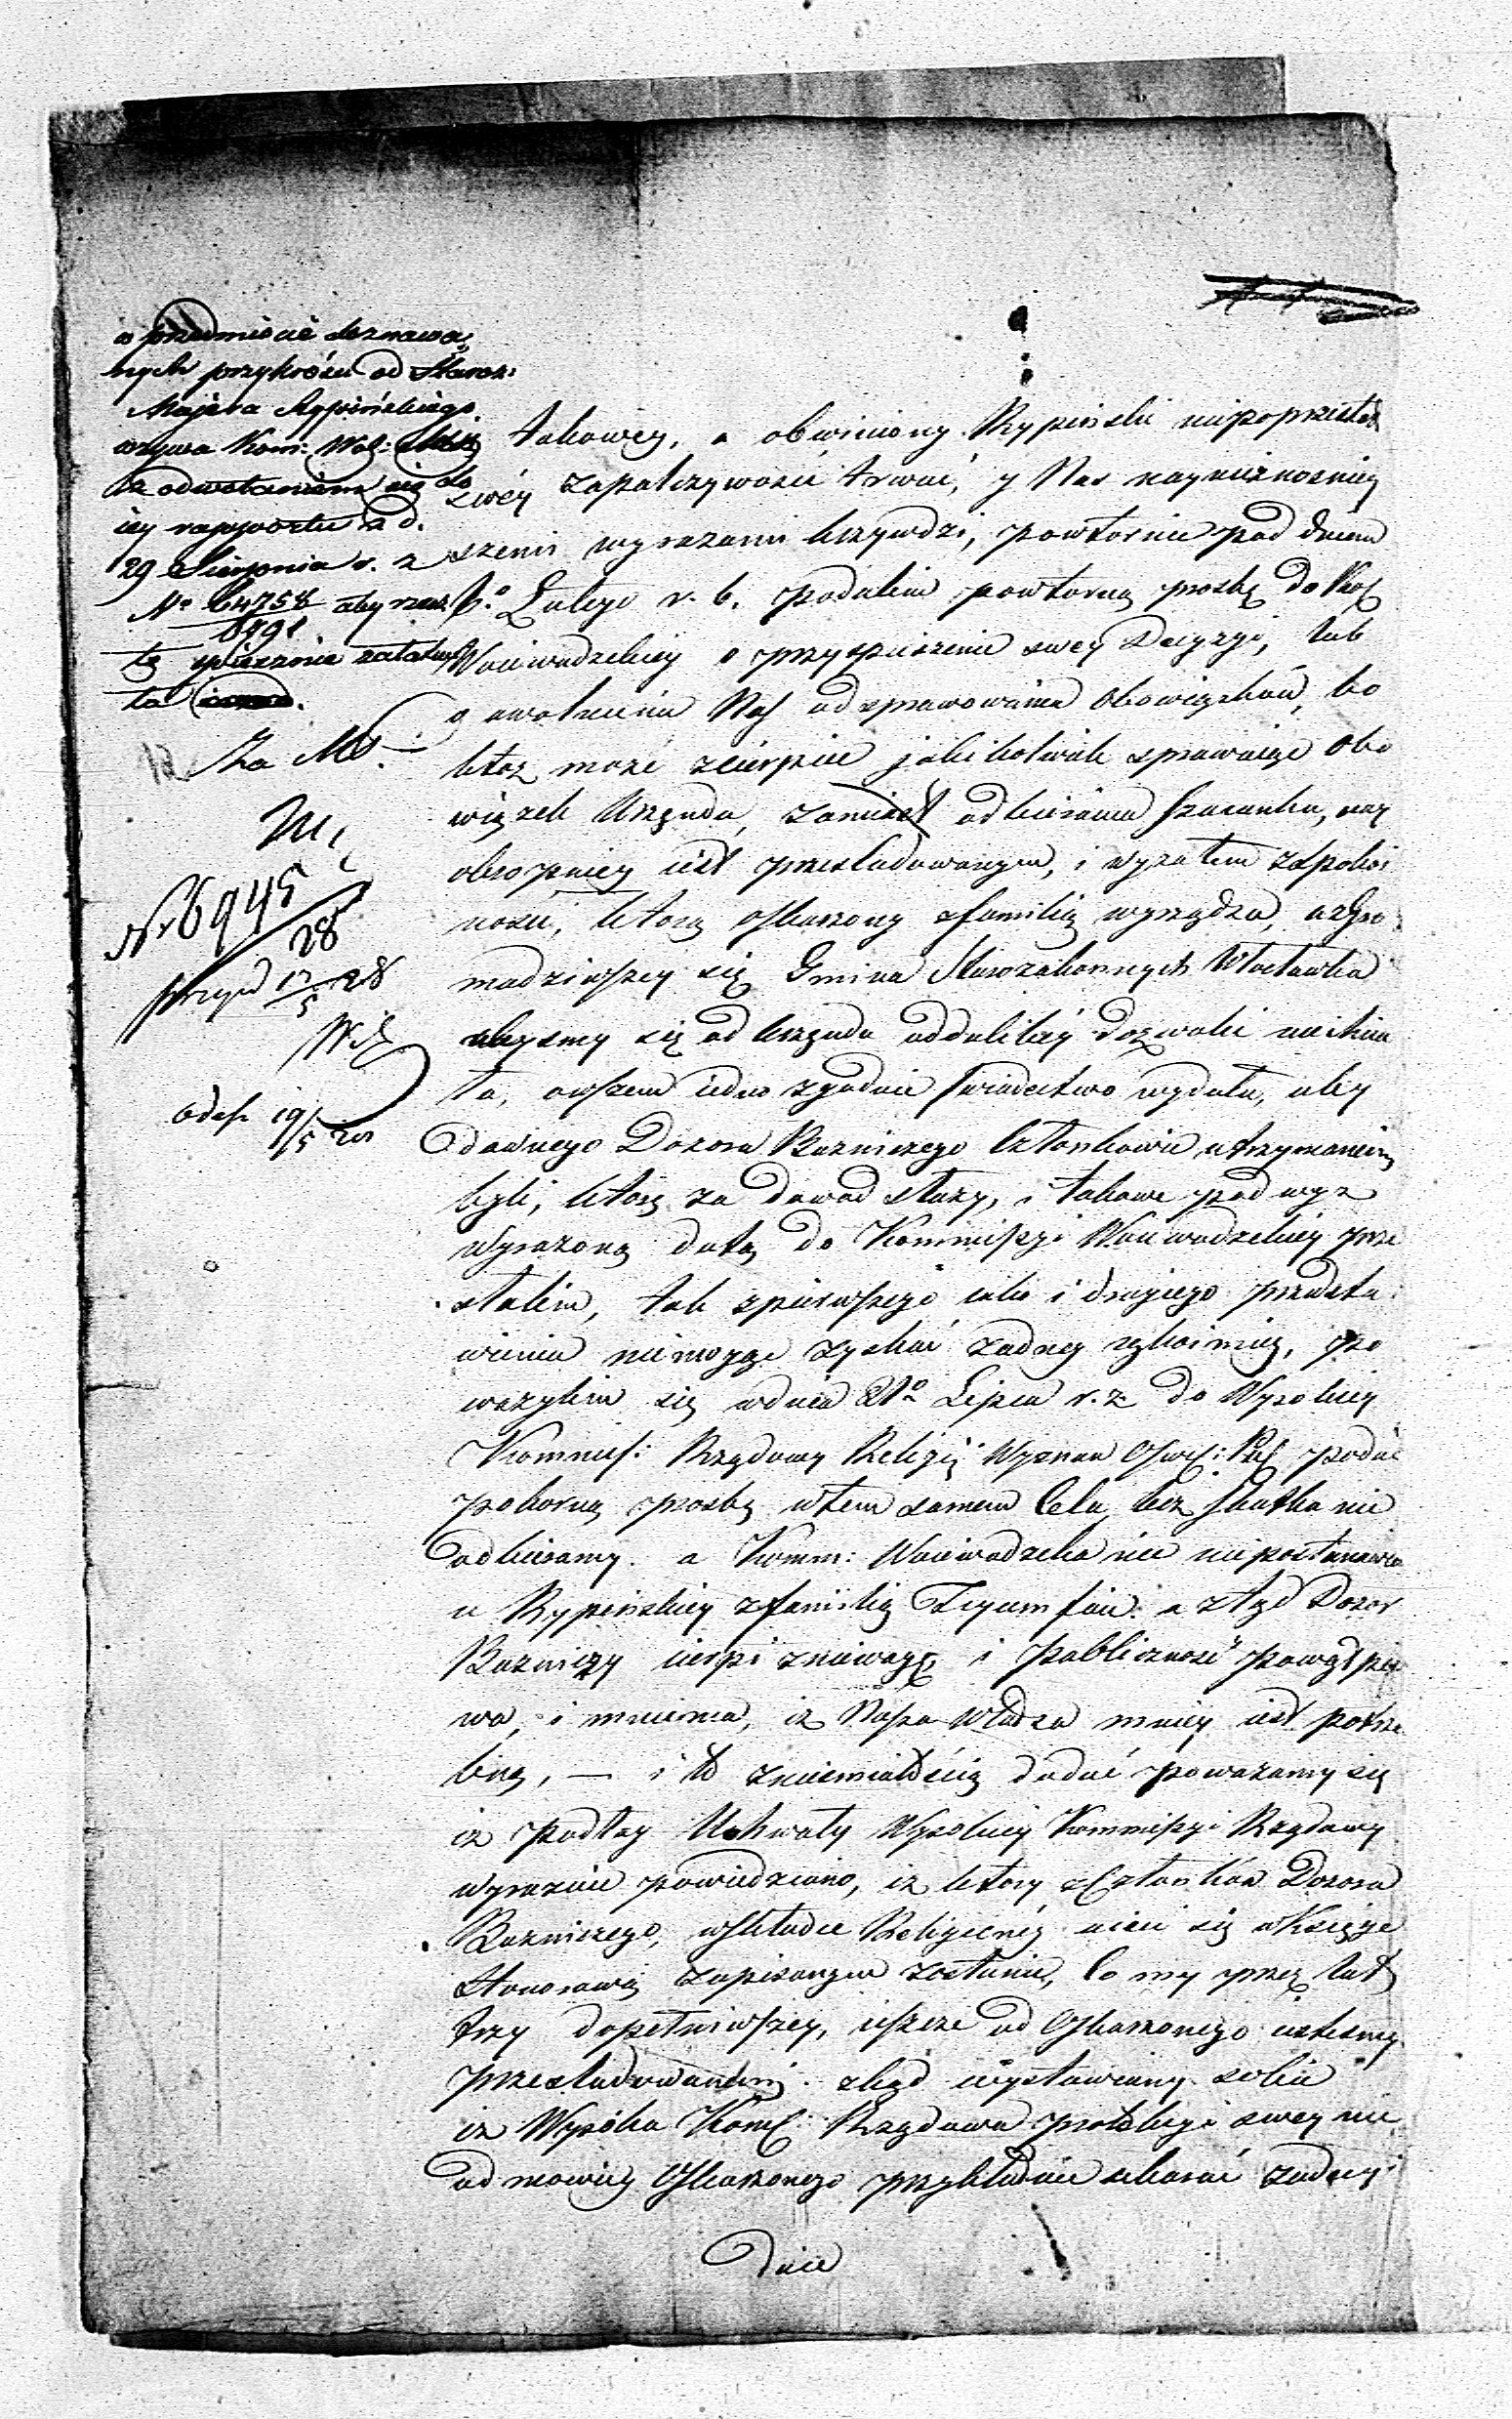 w przedmiocie doznawa-
nych przykrości od Staroz:
Majera Rypińskiego.
wzywa Kom: Woj:
z odwołaniem się do
iey rapportu z d.
29 Sierpnia r. z
No 64758 aby rzecz
6491
tę spiesznie załatwi
ła
Za M
No 6945
28
przyd 17/5 28
odesł 19/5
takowey, a obwiniony Rypiński nieprzestał
swéy zapalczywości trwać, y Nas naynieznośniey
szemi wyrazami krzywdzi, powtórnie pod dniem
Lutego r. b. podałem powtorną prosbę do Kom
Woiewodzkiey o przyspieszenie swey Decyzyi, lub
o uwolnienie Nas od sprawowania Obowiązków, bo
któż może zcierpieć jakikolwiek sprawuiąc Obo
wiązek Urzędu, zamiast odbierania szacunku, nay
okropniey iest prześladowanym, i wyzutem z spokoi
ności, którą oskarżony z familią wyrządza, a zgro
madziwszy się Gmina Starozakonnych Włocławka
abysmy się od Urzędu oddalili dozwolić niechcia
ła, owszem iedno zgodnie swiadectwo wydała, aby
dawnego Dozoru Bozniczego Członkowie utrzymaniemi
byli, które za dowod służy, i takowe pod wyz
wyrażoną datą do Kommissyi Woiewodzkiey prze
słałem, tak z pierwszego iako i drugiego przedsta
wienia niemogąc zyskać żadney rękoimię, po
ważyłem się w dniu 21o Lipca r. z. do Wysokiey
Kommis: Rządowy Religii Wyznan Oswi: Pub podać
pokorną prosbę w tem samem Celu, lecz skutku nie
odbieramy. a Komm: Woiewodzka nic niepostanawia
a Rypińskiey z familią Tryumfuie: a ztąd Dozor
Bozniczy cierpi zniewagę, i Publiczność powątpie
wa, i mniema, iż Nasza Władza mniey iest potrze
bną, — i to z nieśmiałością dodać poważamy się
iż podług Uchwały Wysokiey Kommissyi Rządowy
wyraznie powiedziano, iż który z Członków Dozoru
Bozniczego, w składce Religiiney uiści się w Księgę
Honorową zapisanym zostanie, Co my przez lat
trzy dopełniwszy, ieszcze od Oskarżonego iesteśmy
prześladowanemi. zkąd wystawiamy sobie
iż Wysoka Kom: Rządowa protekcyi swey nie
odmowiey Oskarżonego przykładnie ukarać zadecy
duie